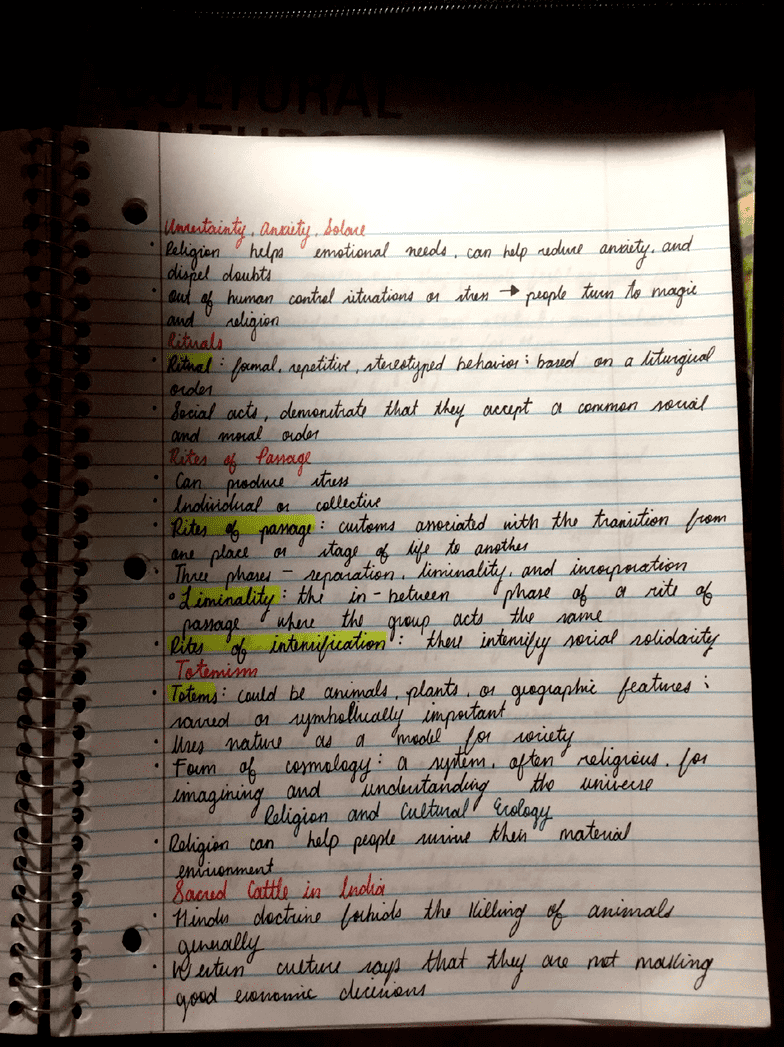 CULTURAL
Uncertainty, Anxiety, Solace
• Religion helps emotional needs, can help reduce anxiety, and
dispel doubts
• Out of human control situations or stress → people turn to magic
and religion
Rituals
• Ritual: formal, repetitive, stereotyped behavior; based on a liturgical
order
• Social acts, demonstrate that they accept a common social
and moral order
Rites of Passage
• Can produce stress
• Individual or collective
• Rites of passage: customs associated with the transition from
one place or stage of life to another
• Three phases - separation, liminality, and incorporation
• Liminality: the in-between phase of a rite of
passage where the group acts the same
• Rites of intensification: these intensify social solidarity
Totemism
• Totems: could be animals, plants, or geographic features;
sacred or symbolically important
• Uses nature as a model for society
• Form of cosmology: a system, often religious, for
imagining and understanding the universe
Religion and Cultural Ecology
• Religion can help people survive their material
environment
Sacred Cattle in India
• Hindu doctrine forbids the killing of animals
generally
• Western culture says that they are not making
good economic decisions